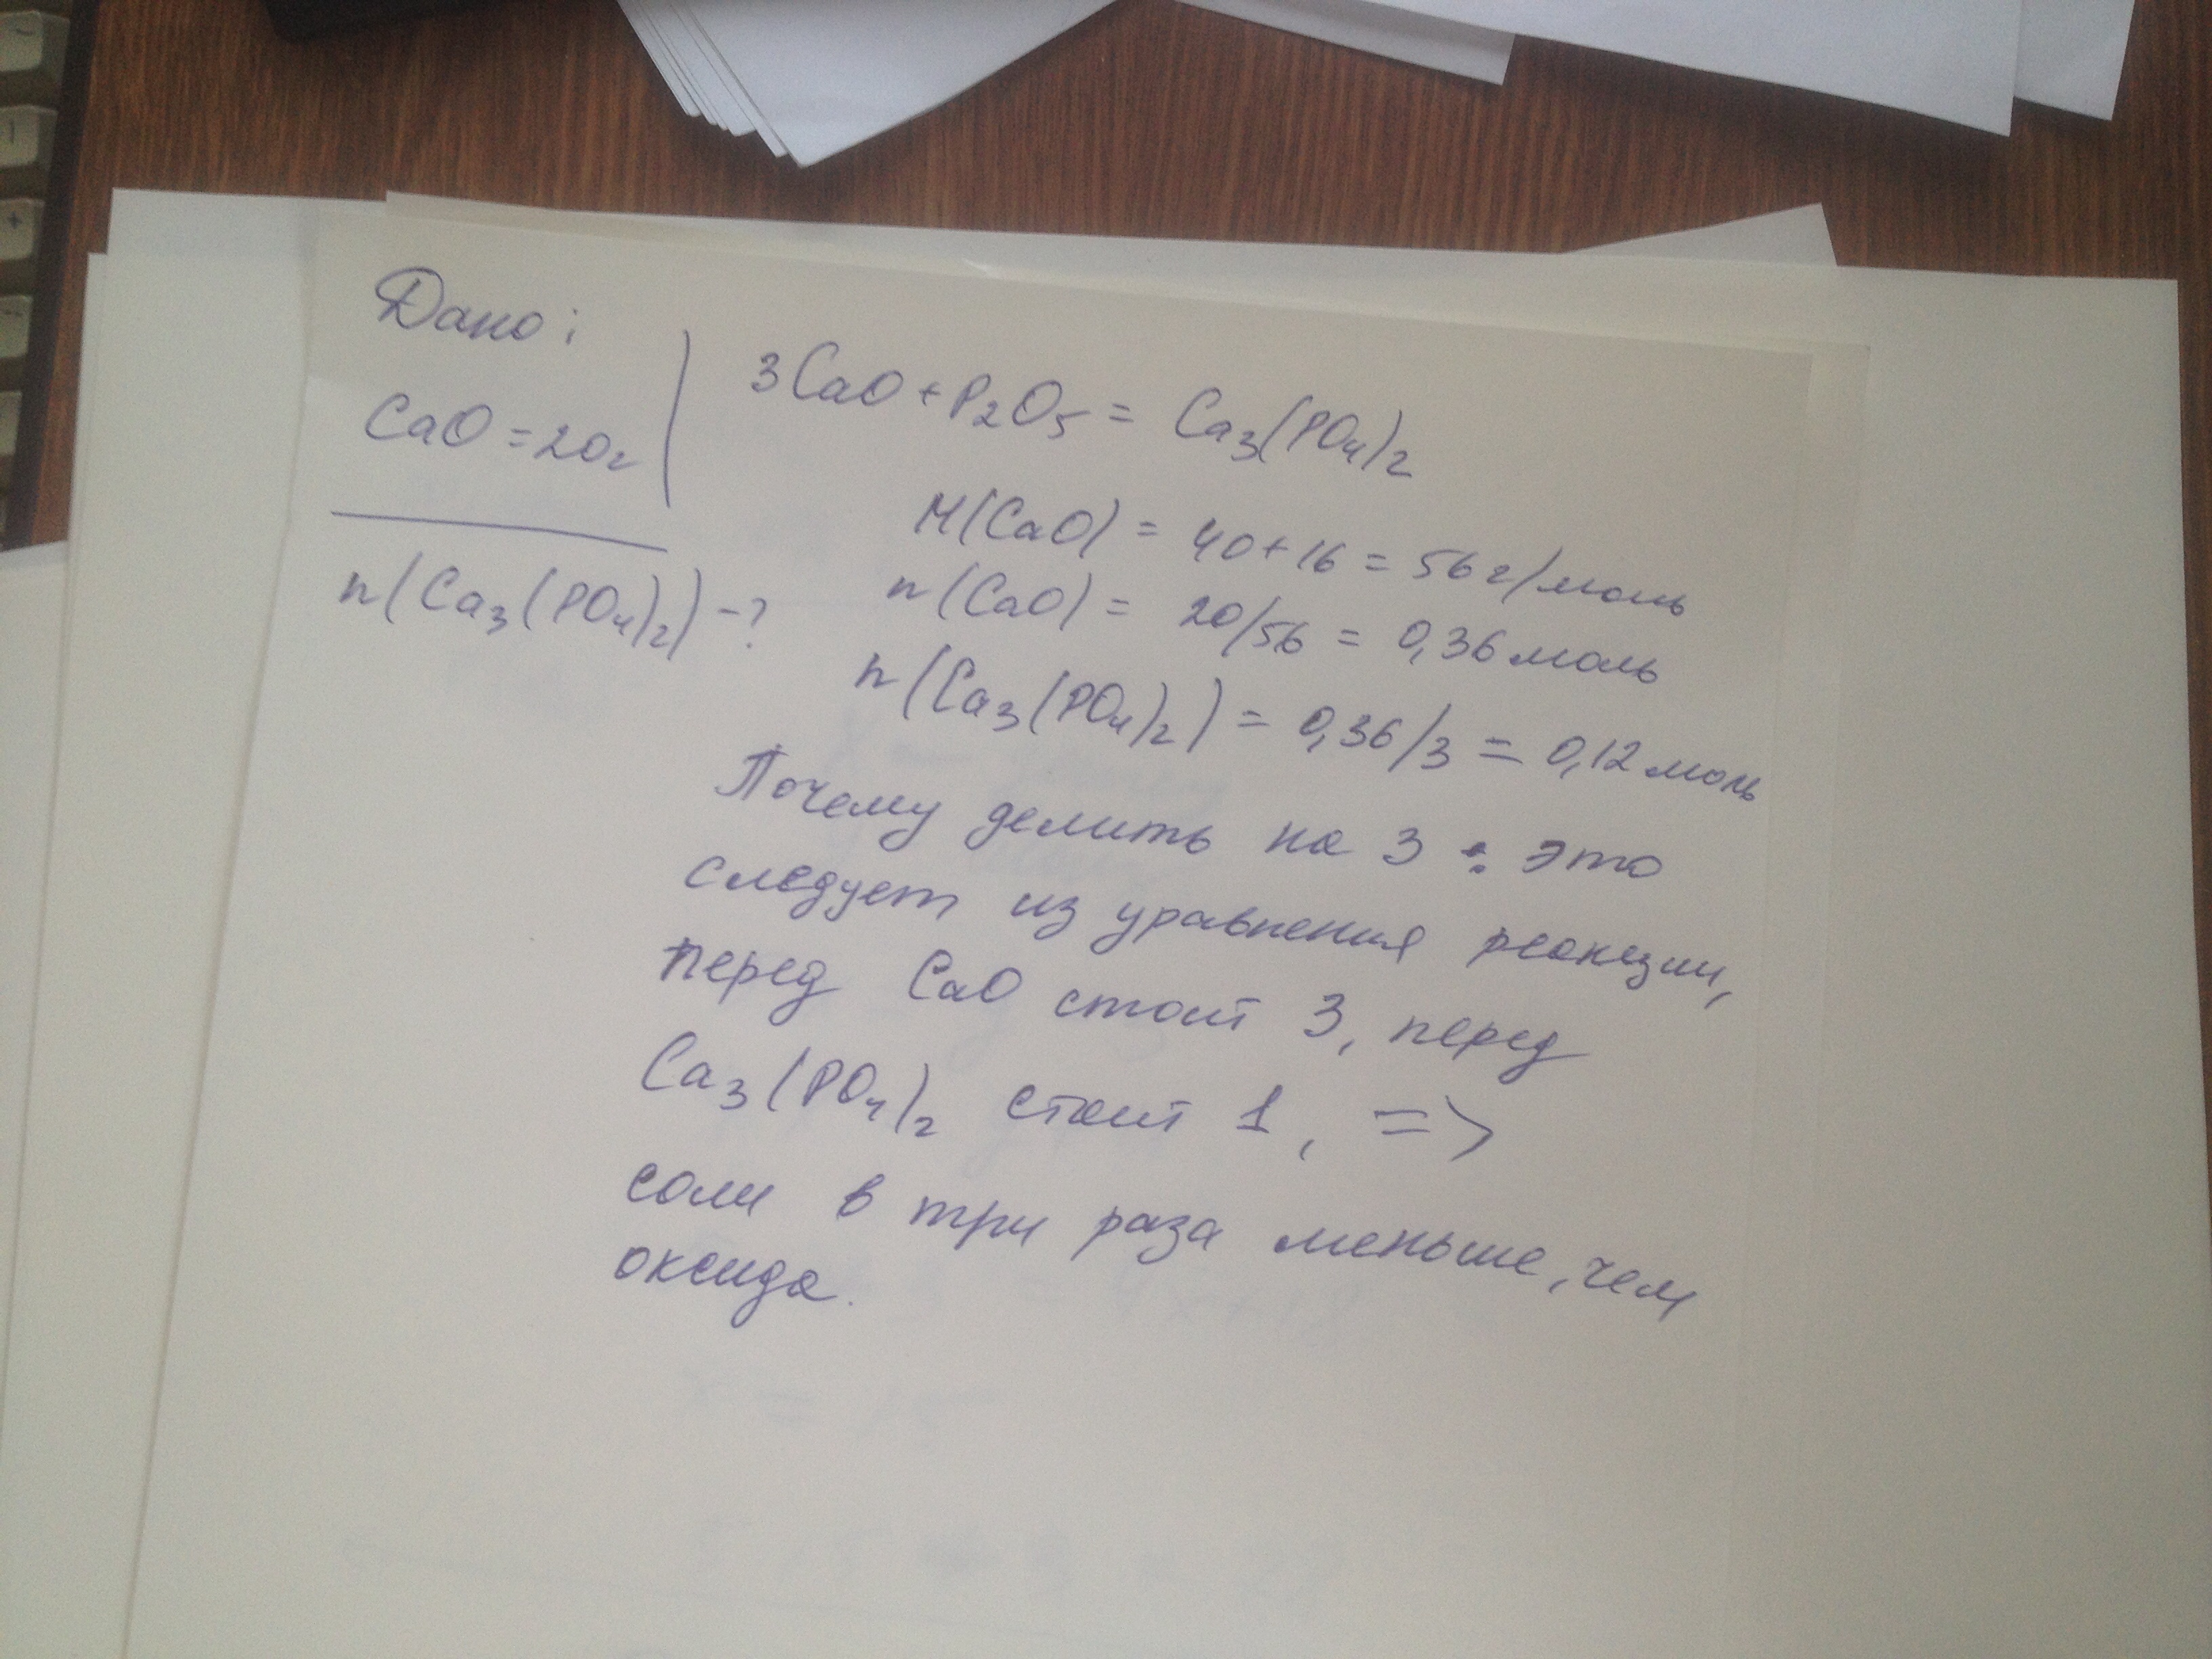 Дано:
CaO = 20г
n(Ca₃(PO₄)₂) - ?
3CaO + P₂O₅ = Ca₃(PO₄)₂
M(CaO) = 40 + 16 = 56 г/моль
n(CaO) = 20/56 = 0,36 моль
n(Ca₃(PO₄)₂) = 0,36/3 = 0,12 моль
Почему делить на 3 : это
следует из уравнения реакции,
перед CaO стоит 3, перед
Ca₃(PO₄)₂ стоит 1, =>
соли в три раза меньше, чем
оксида.